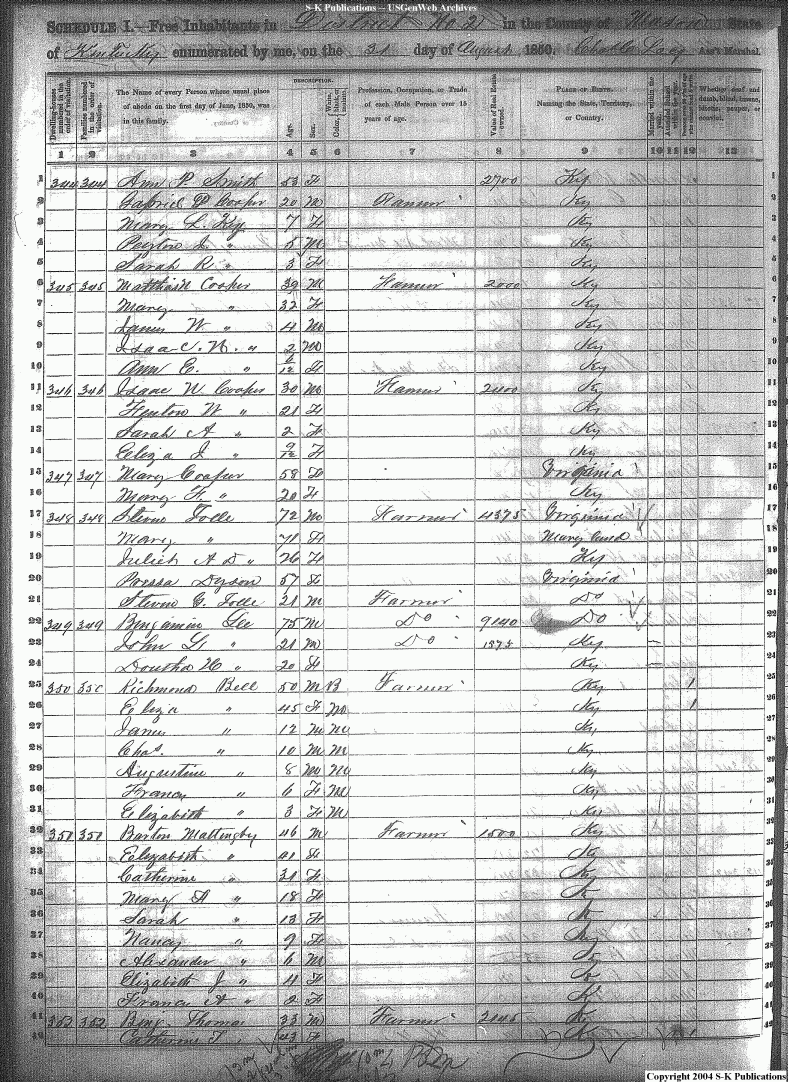 S-K Publications – USGenWeb Archives
SCHEDULE I.—Free Inhabitants in District No 2 in the County of Mason State
of Kentucky enumerated by me, on the 21 day of August 1850. Ass't Marshal.
DESCRIPTION.
Dwelling-houses numbered in the order of visitation. Families numbered in the order of visitation. The Name of every Person whose usual place of abode on the first day of June, 1850, was in this family. Age. Sex. Color, White, black, or mulatto. Profession, Occupation, or Trade of each Male Person over 15 years of age. Value of Real Estate owned. PLACE OF BIRTH. Naming the State, Territory, or Country. Married within the year. Whether deaf and dumb, blind, insane, idiotic, pauper, or convict.
1 2 3 4 5 6 7 8 9 10 11 12 13
1 344 344 Ann P. Smith 53 F 2700 Ky 1
2 Gabriel P Cooper 20 M Farmer Ky 2
3 Mary L. Key 7 F Ky 3
4 Payton L " 5 M Ky 4
5 Sarah R. " 3 F Ky 5
6 345 345 Cooper 39 M Farmer 2000 Ky 6
7 Mary " 32 F Ky 7
8 James W " 4 M Ky 8
9 Isaac N. " 2 M Ky 9
10 Ann C. " 6/12 F Ky 10
11 346 346 Isaac W Cooper 30 M Farmer 2400 Ky 11
12 Fenton W " 21 F Ky 12
13 Sarah A " 2 F Ky 13
14 Eliza J " 9/12 F Ky 14
15 347 347 Mary Cooper 58 F Virginia 15
16 Mary F. " 20 F Ky 16
17 348 348 Tolle 72 M Farmer 4375 Virginia 17
18 Mary " 71 F Mary land 18
19 A D " 26 F Ky 19
20 Dyson 57 F Virginia 20
21 G. Tolle 21 M Farmer Do 21
22 349 349 Benjamin Lee 75 M Do 9140 Do 22
23 John G. " 21 M Do 1875 Ky 23
24 " 20 F Ky 24
25 350 350 Richmond Bell 50 M B Farmer Ky 1 25
26 Eliza " 45 F M Ky 1 26
27 James " 12 M M Ky 27
28 Chas. " 10 M M Ky 28
29 Augustine " 8 M M Ky 29
30 Francy " 6 F M Ky 30
31 Elizabeth " 3 F M Ky 31
32 351 351 Barton Mattingby 46 M Farmer 1500 Ky 32
33 Elizabeth " 41 F Ky 33
34 Catherine " 31 F Ky 34
35 Mary A " 18 F Ky 35
36 Sarah " 13 F Ky 36
37 Nancy " 9 F Ky 37
38 Alexander " 6 M Ky 38
39 Elizabeth J " 4 F Ky 39
40 Francis A " 2 F Ky 40
41 352 352 Benj. Thomas 33 M Farmer 2045 Ky 41
42 Catherine F. 43 F Ky 42
Copyright 2004 S-K Publications